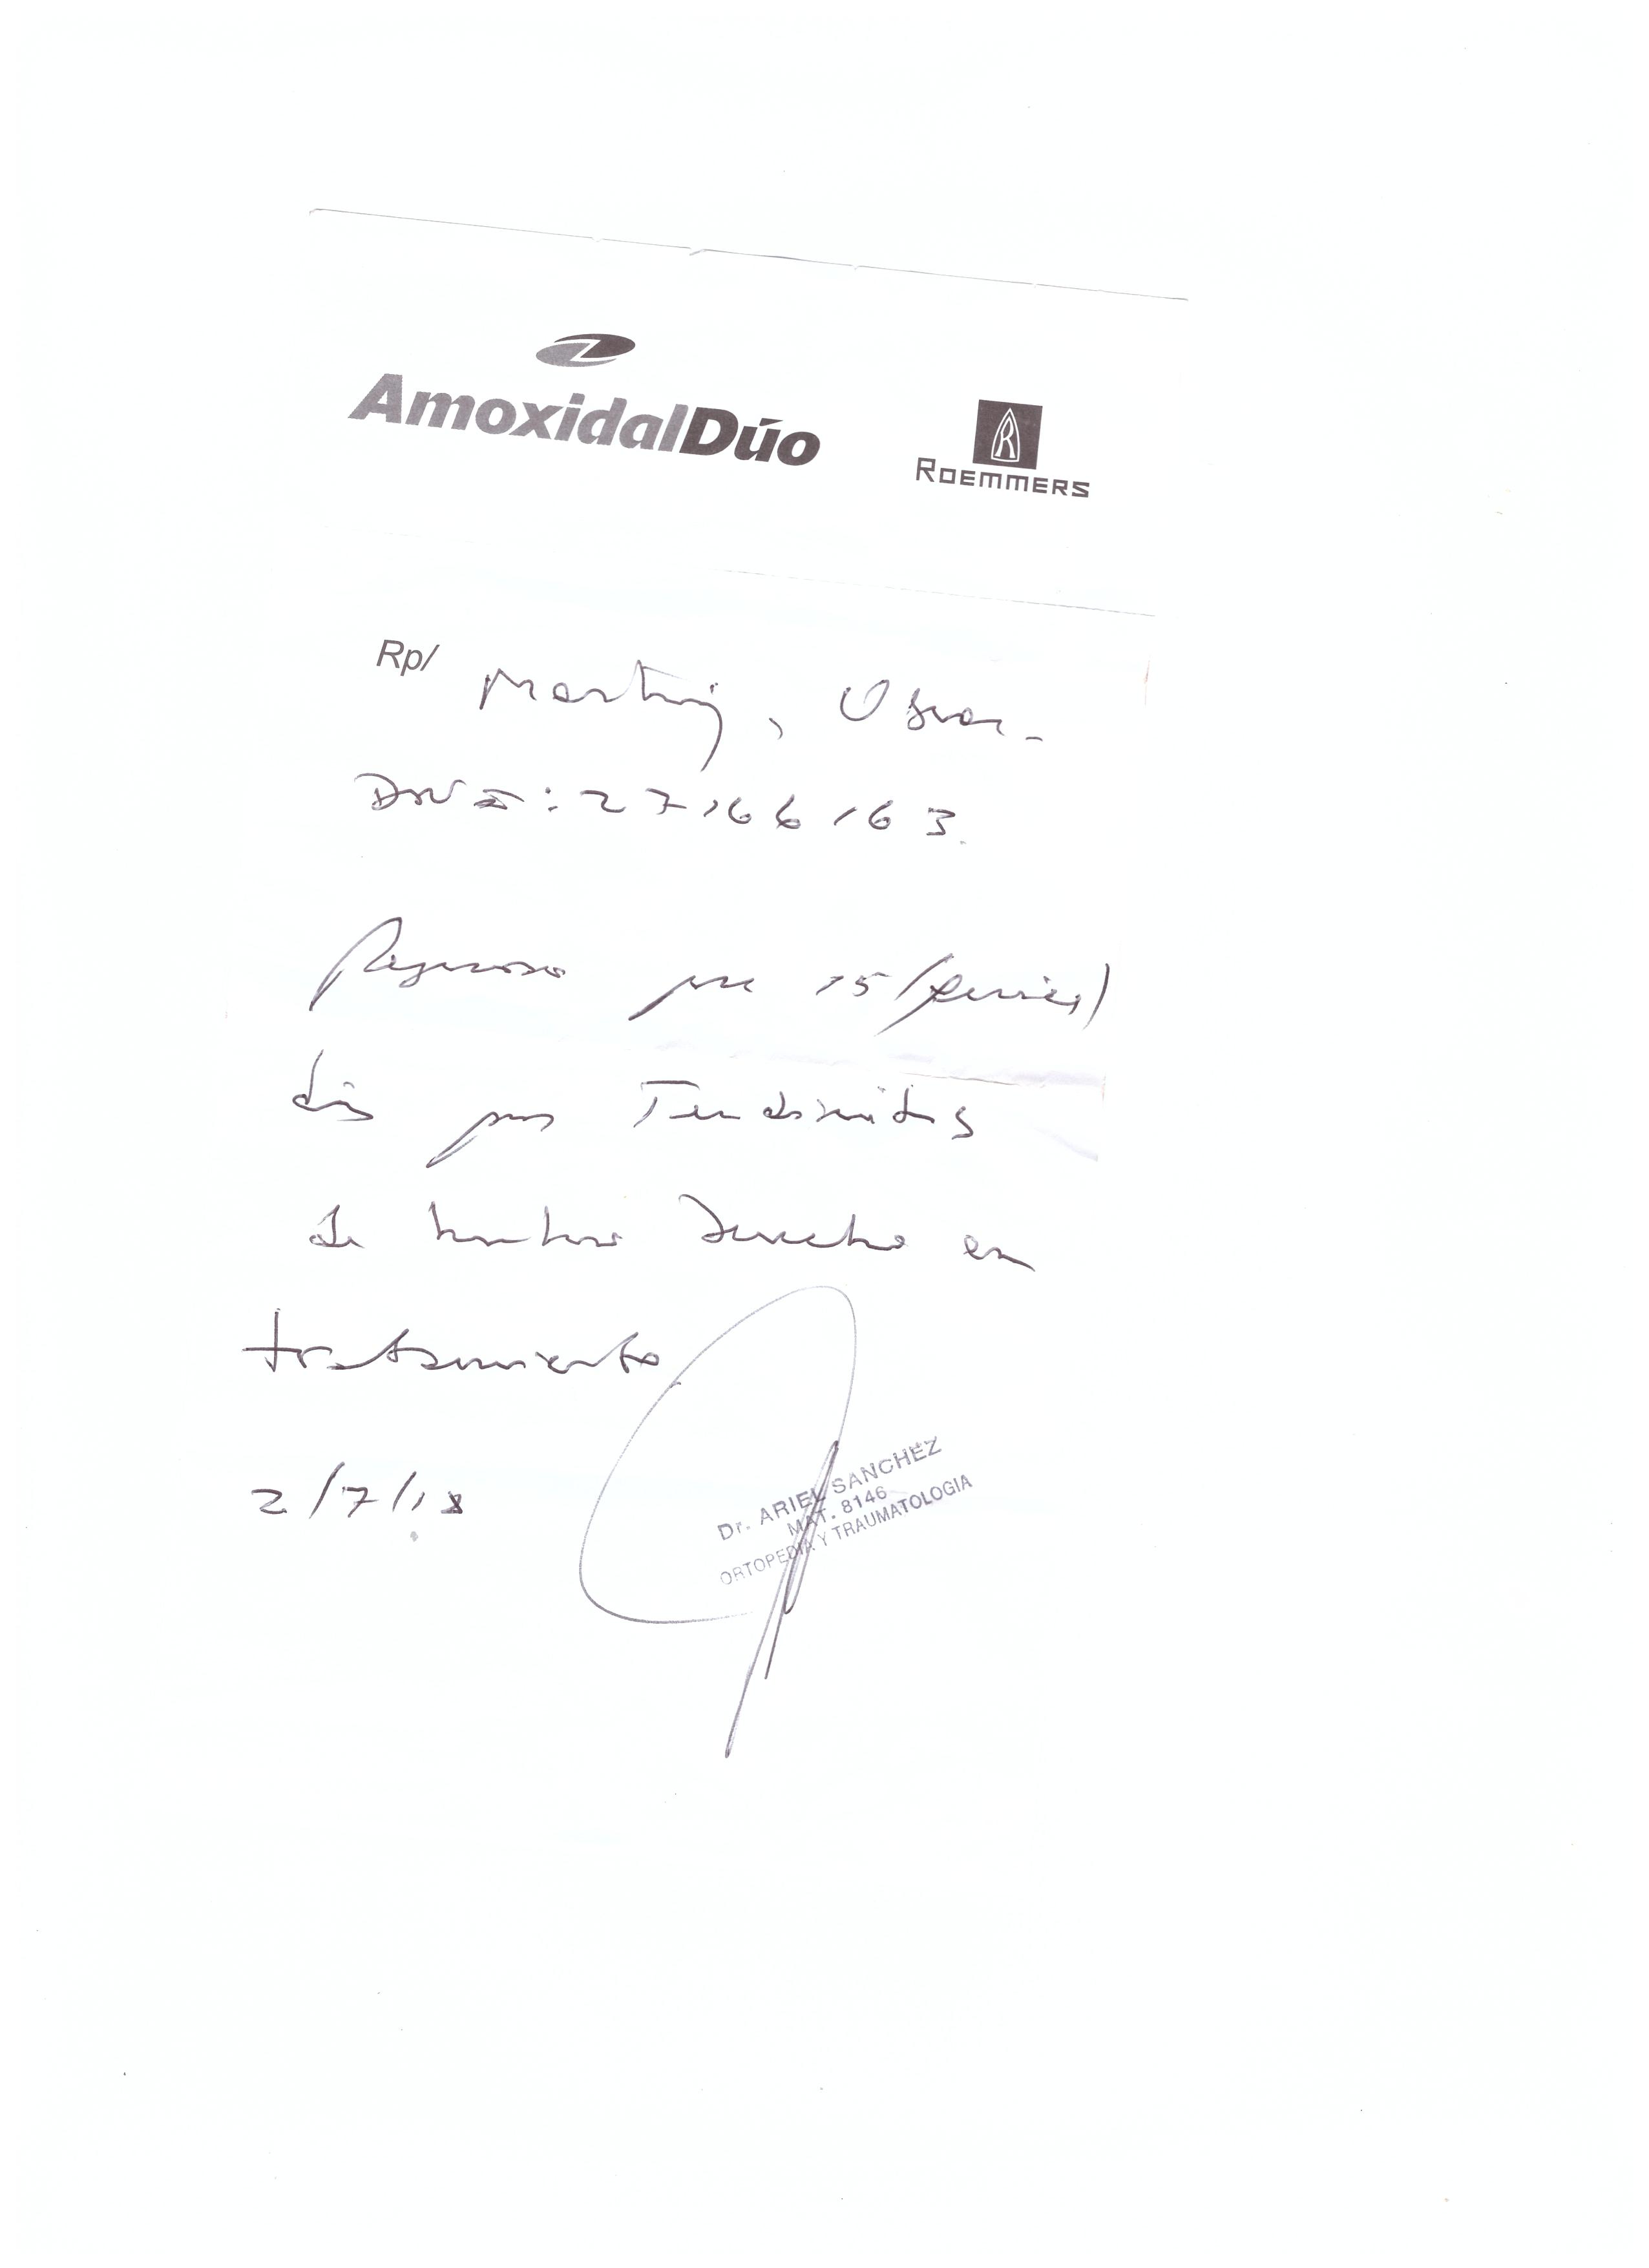 AmoxidalDúo
ROEMMERS
Rp/ Martinez, Oscar.
DNI: 27166163.
Reposo por 15 (quince)
dias por Tendinitis
de hombro Derecho en
tratamiento
2/7/18
Dr. ARIEL SANCHEZ
MAT. 8146
ORTOPEDIA Y TRAUMATOLOGIA